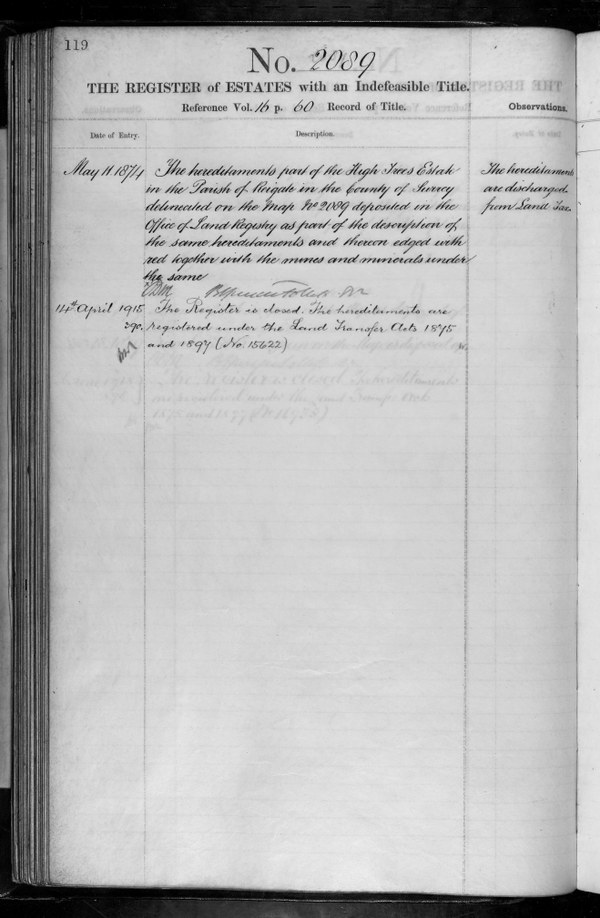 119
No. 2089
THE REGISTER of ESTATES with an Indefeasible Title.
Reference Vol. 16 p. 60 Record of Title.
Observations.
Date of Entry.
Description.
May 11 1874
The hereditaments part of the High Trees Estate
in the Parish of Reigate in the County of Surrey
delineated on the Map No 2089 deposited in the
Office of Land Registry as part of the description of
the same hereditaments and thereon edged with
red together with the mines and minerals under
the same
The hereditaments
are discharged
from Land Tax.
14th April 1915
The Register is closed. The hereditaments are
registered under the Land Transfer Acts 1875
and 1897 (No. 15622)